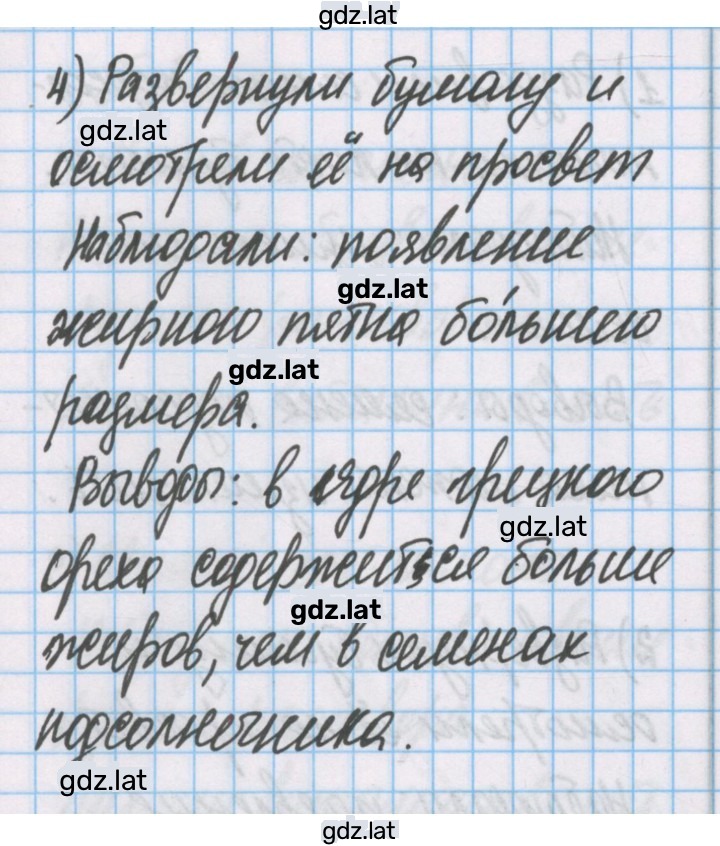 gdz.lat
4) Развернули бумагу и
gdz.lat
осмотрели её на просвет
Наблюдали: появление
gdz.lat
жирного пятна бо́льшего
gdz.lat
размера.
Выводы: в ядре грецкого
gdz.lat
ореха содержится больше
gdz.lat
жиров, чем в семенах
подсолнечника.
gdz.lat
gdz.lat